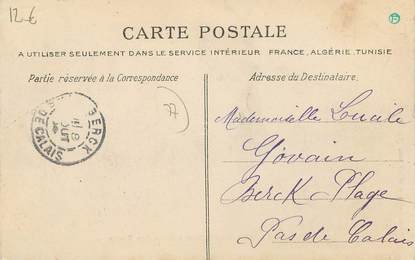 12 €
CARTE POSTALE
A UTILISER SEULEMENT DANS LE SERVICE INTÉRIEUR FRANCE, ALGÉRIE, TUNISIE
Partie réservée à la Correspondance
Adresse du Destinataire.
77
BERCK
DE CALAIS
Mademoiselle Lucile
Govain
Berck Plage
Pas de Calais